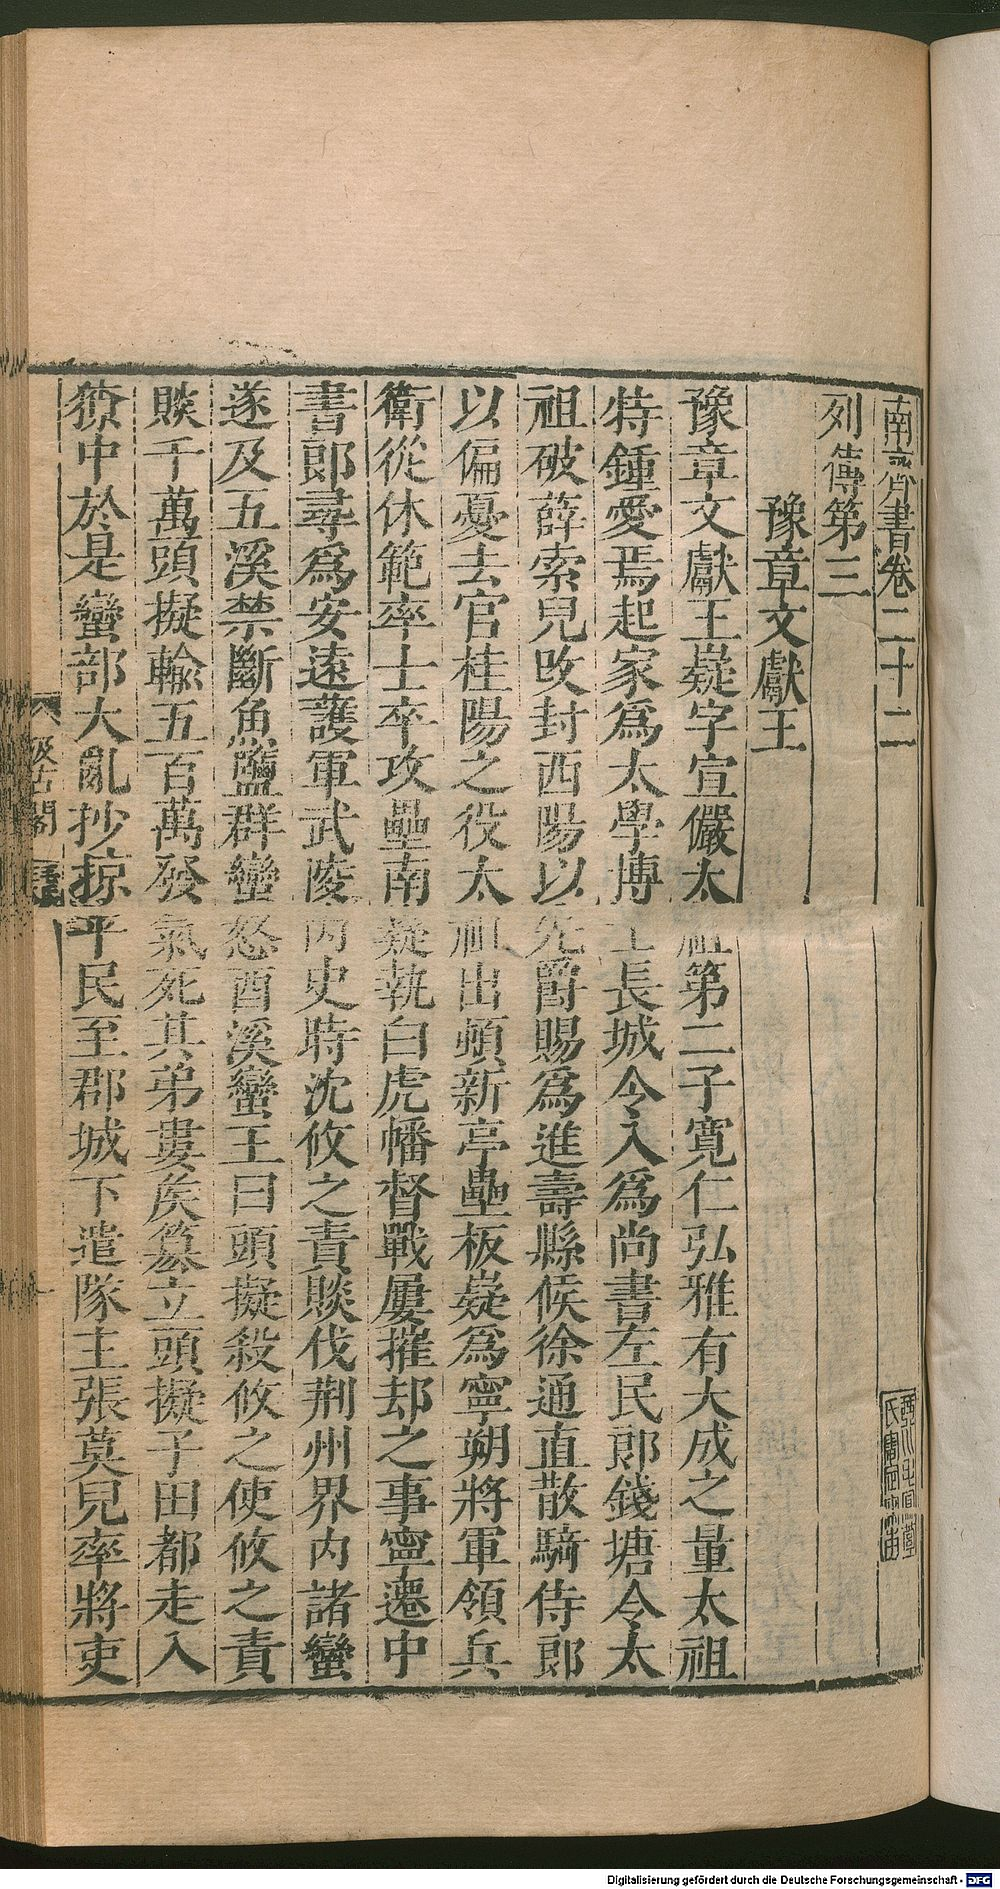 南齊書卷二十二
列傳第三
豫章文獻王
豫章文獻王嶷字宣儼太祖第二子寬仁弘雅有大成之量太祖
特鍾愛焉起家為太學博士長城令入為尚書左民郎錢塘令太
祖破薛索兒改封西陽以先爵賜為進壽縣侯徐通直散騎侍郎
以偏憂去官桂陽之役太祖出頓新亭壘板嶷為寧朔將軍領兵
衛從休範率士卒攻壘南嶷執白虎幡督戰屢摧却之事寧遷中
書郎尋為安遠護軍武陵內史時沈攸之責賧伐荆州界內諸蠻
遂及五溪禁斷魚鹽群蠻怒酉溪蠻王曰頭擬殺攸之使攸之責
賧千萬頭擬輸五百萬發氣死其弟婁矦篡立頭擬子田都走入
獠中於是蠻部大亂抄掠平民至郡城下遣隊主張莫兒率將吏
汲古閣
Digitalisierung gefördert durch die Deutsche Forschungsgemeinschaft - DFG